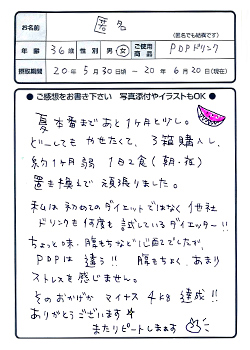 お名前 匿名
(匿名でも結構です)
年齢 36歳 性別 男・女 ご使用商品 PDPドリンク
摂取期間 20年5月30日頃 ～ 20年6月20日(現在)
● ご感想をお書き下さい 写真添付やイラストもOK ●
夏本番まであと1ヶ月と少し。
どーしてもやせたくて、3箱購入し、
約1ヶ月弱 1日2食(朝・夜)
置き換えで頑張りました。
私は初めてのダイエットではなく他社
ドリンクも何度も試しているダイエッター!!
ちょっと味・腹もちなど心配でしたが、
PDPは違う!! 腹もちよく、あまり
ストレスを感じません。
そのおかげか マイナス4KG達成!!
ありがとうございます
またリピートします